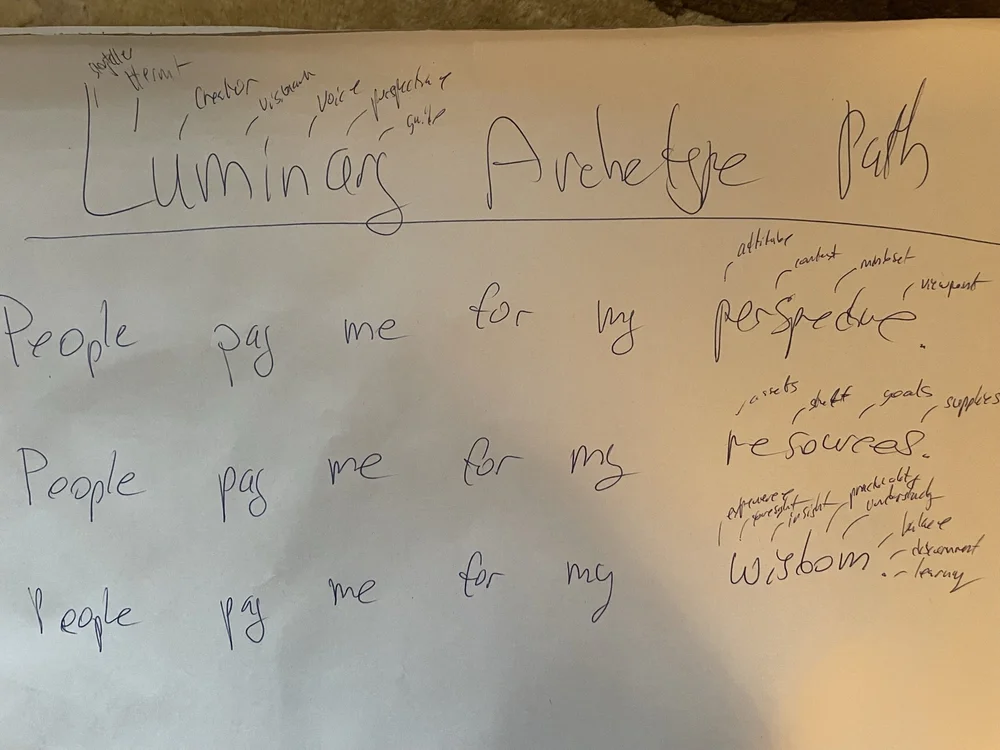 Hermit
Creator
visionary
voice
perspective
guide
Luminary Archetype Path
attitude
context
mindset
viewpoint
People pay me for my perspective.
assets
stuff
goods
supplies
People pay me for my resources.
experience
foresight
insight
practicality
understudy
balance
discernment
learning
People pay me for my wisdom.